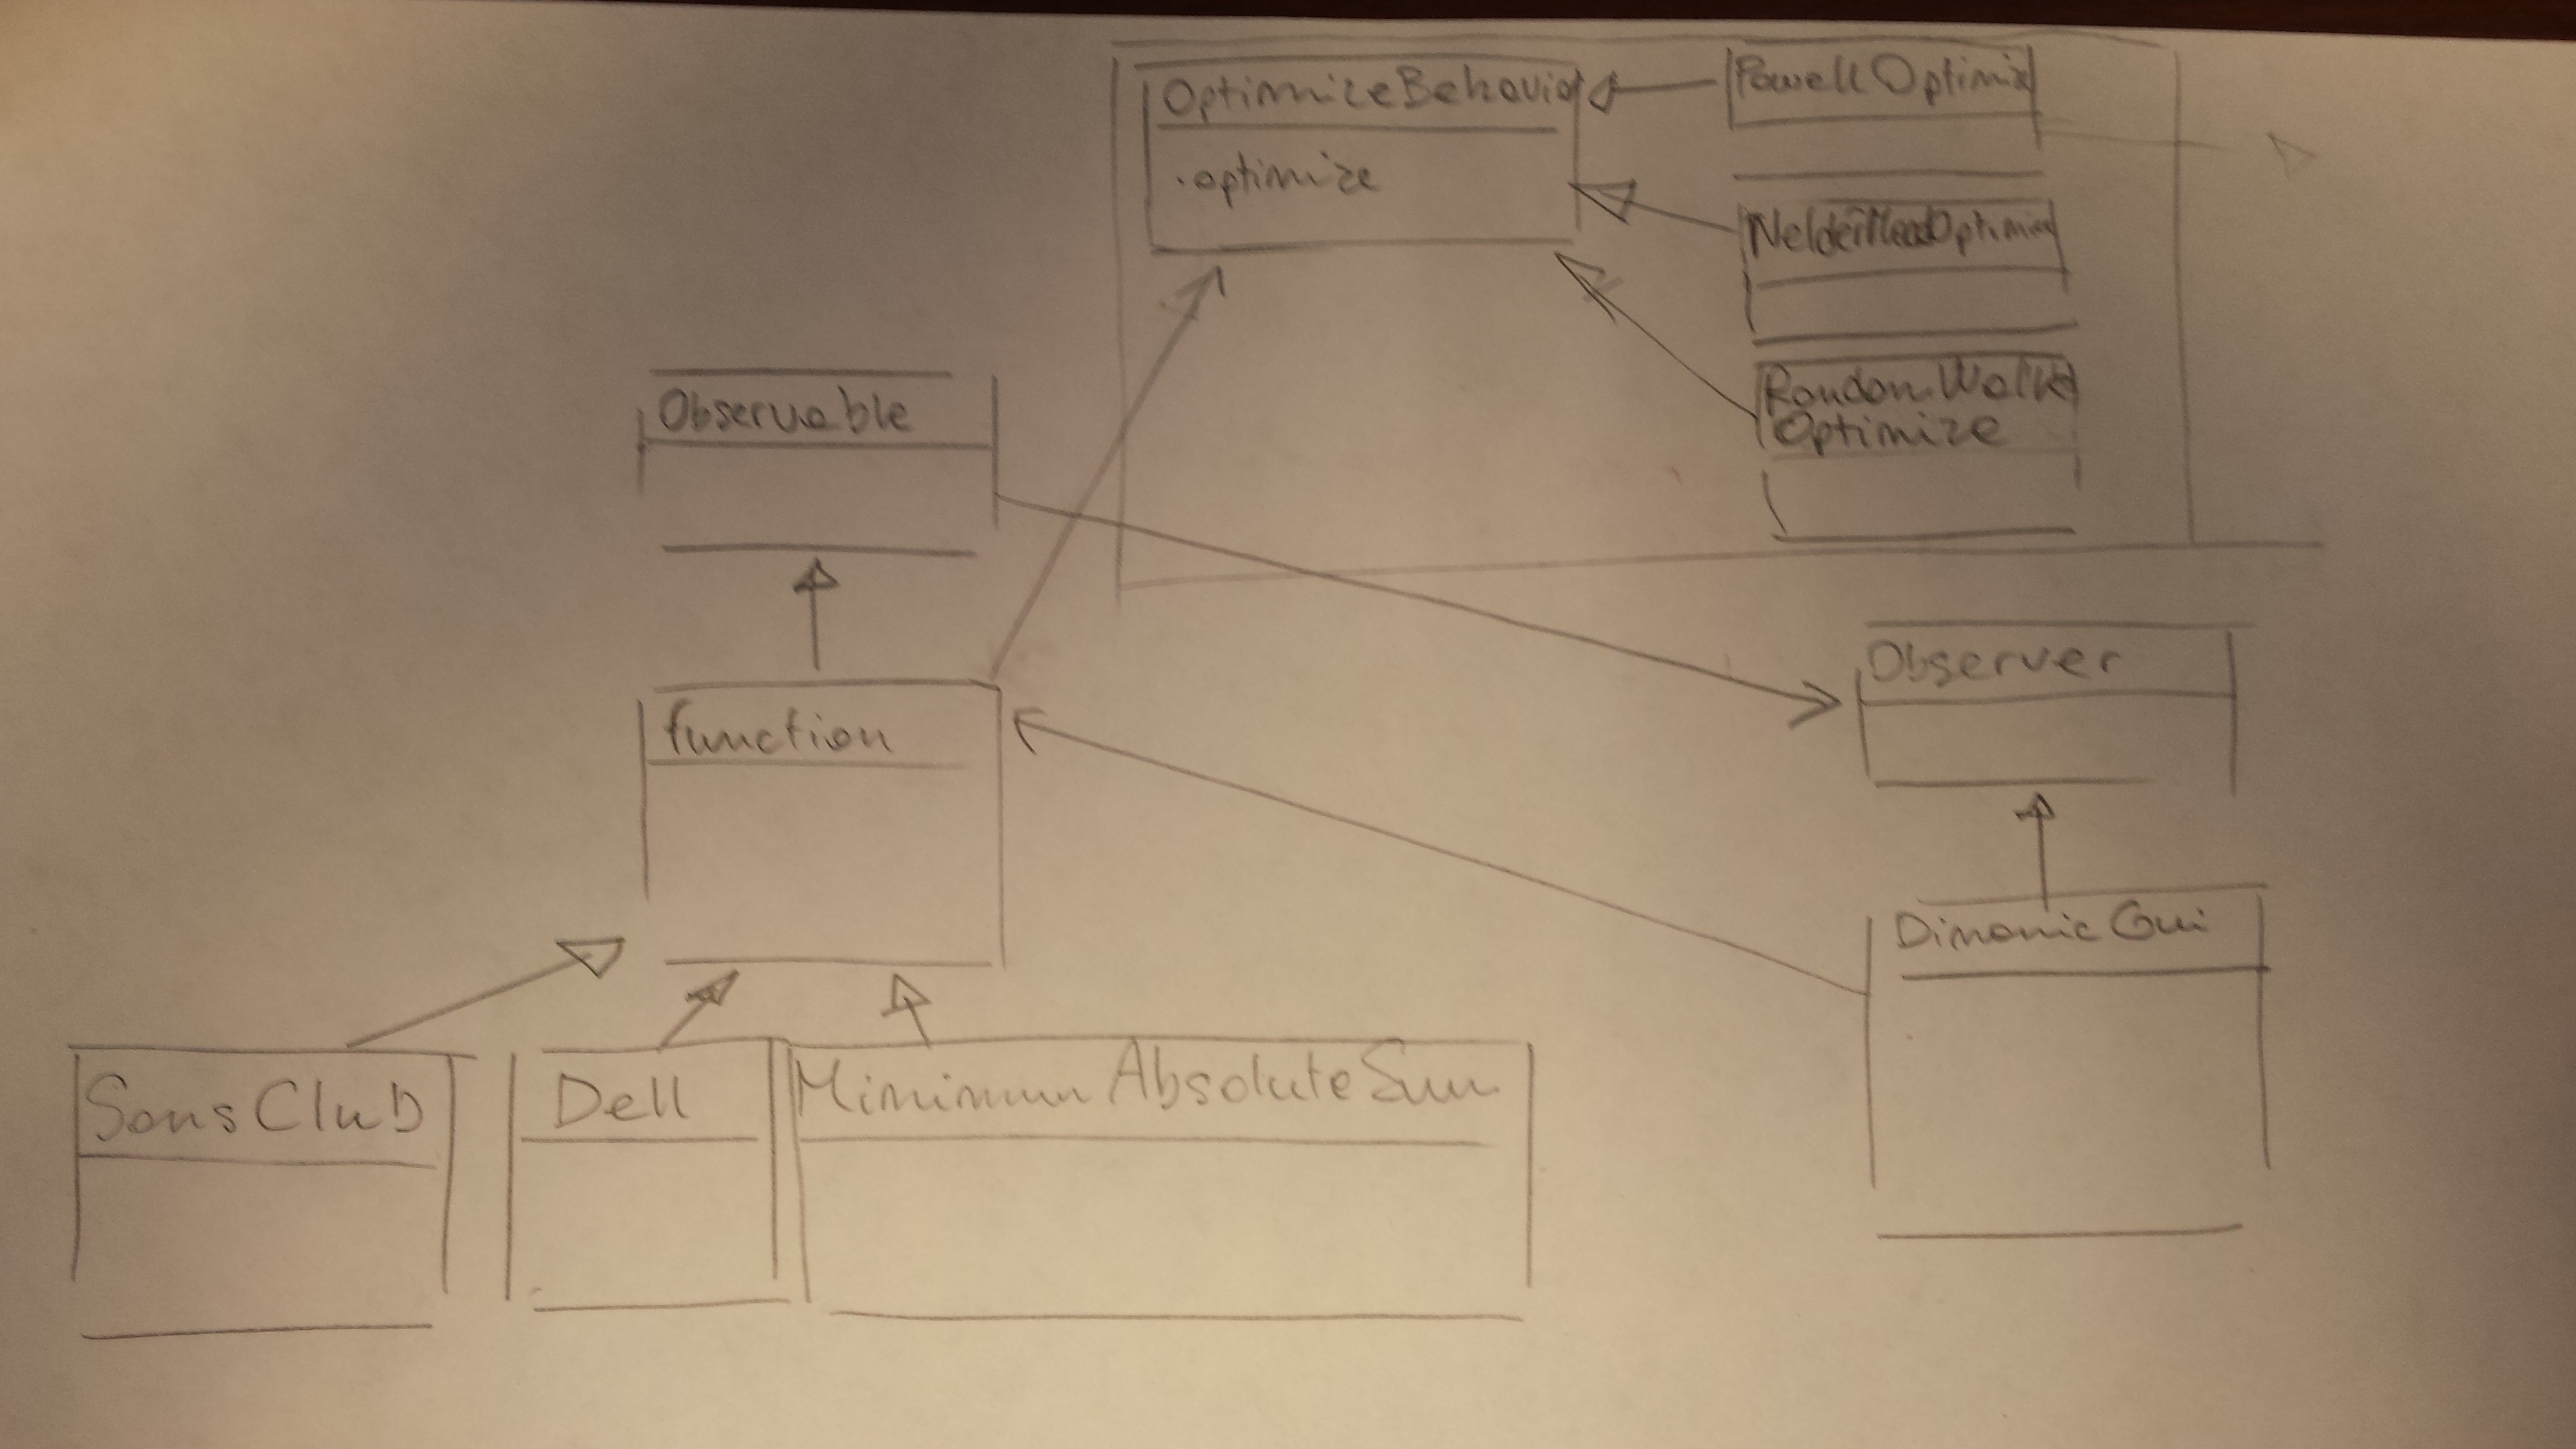 OptimizeBehavio
.optimize
Powell Optimiz
NelderMeadOptimize
Random.Walk
Optimize
Observable
Observer
function
Dinamic Gui
Sams Club
Dell
Minimum Absolute Sum